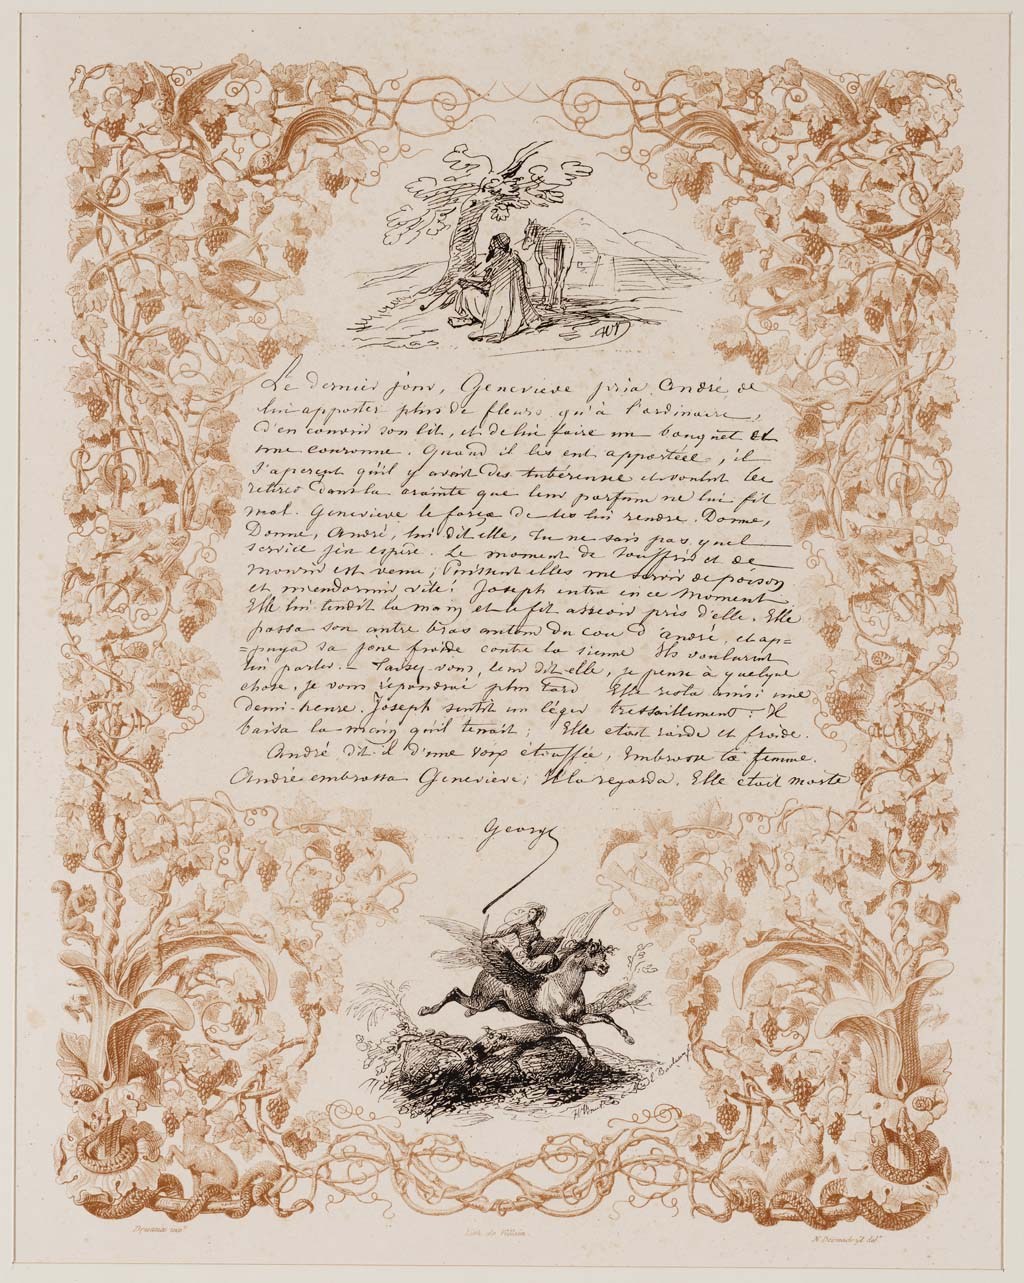 WD
Le dernier jour, Geneviève pria André de
lui apporter plus de fleurs qu'à l'ordinaire,
d'en couvrir son lit, et de lui faire un bouquet et
une couronne. Quand il les eut apportées, il
s'aperçut qu'il y avait des tubéreuses et voulut les
retirer dans la crainte que leur parfum ne lui fit
mal. Geneviève le força de les lui rendre. Donne,
Donne, André, lui dit elle, tu ne sais pas quel
service j'en espère. Le moment de souffrir et de
mourir est venu; Puissent elles me servir de poison
et m'endormir vite! Joseph entra en ce moment
Elle lui tendit la main et le fit asseoir près d'elle. Elle
passa son autre bras autour du cou d'André, et ap=
=puya sa joue froide contre la sienne Ils voulurent
lui parler. – Taisez-vous, leur dit elle, je pense à quelque
chose, je vous répondrai plus tard Elle resta ainsi une
demi-heure. Joseph sentit un léger tressaillement: Il
baisa la main qu'il tenait; Elle était raide et froide.
André dit-il d'une voix étouffée, Embrasse ta femme.
André embrassa Geneviève; Il la regarda. Elle était morte
George
Lith. de Villain.